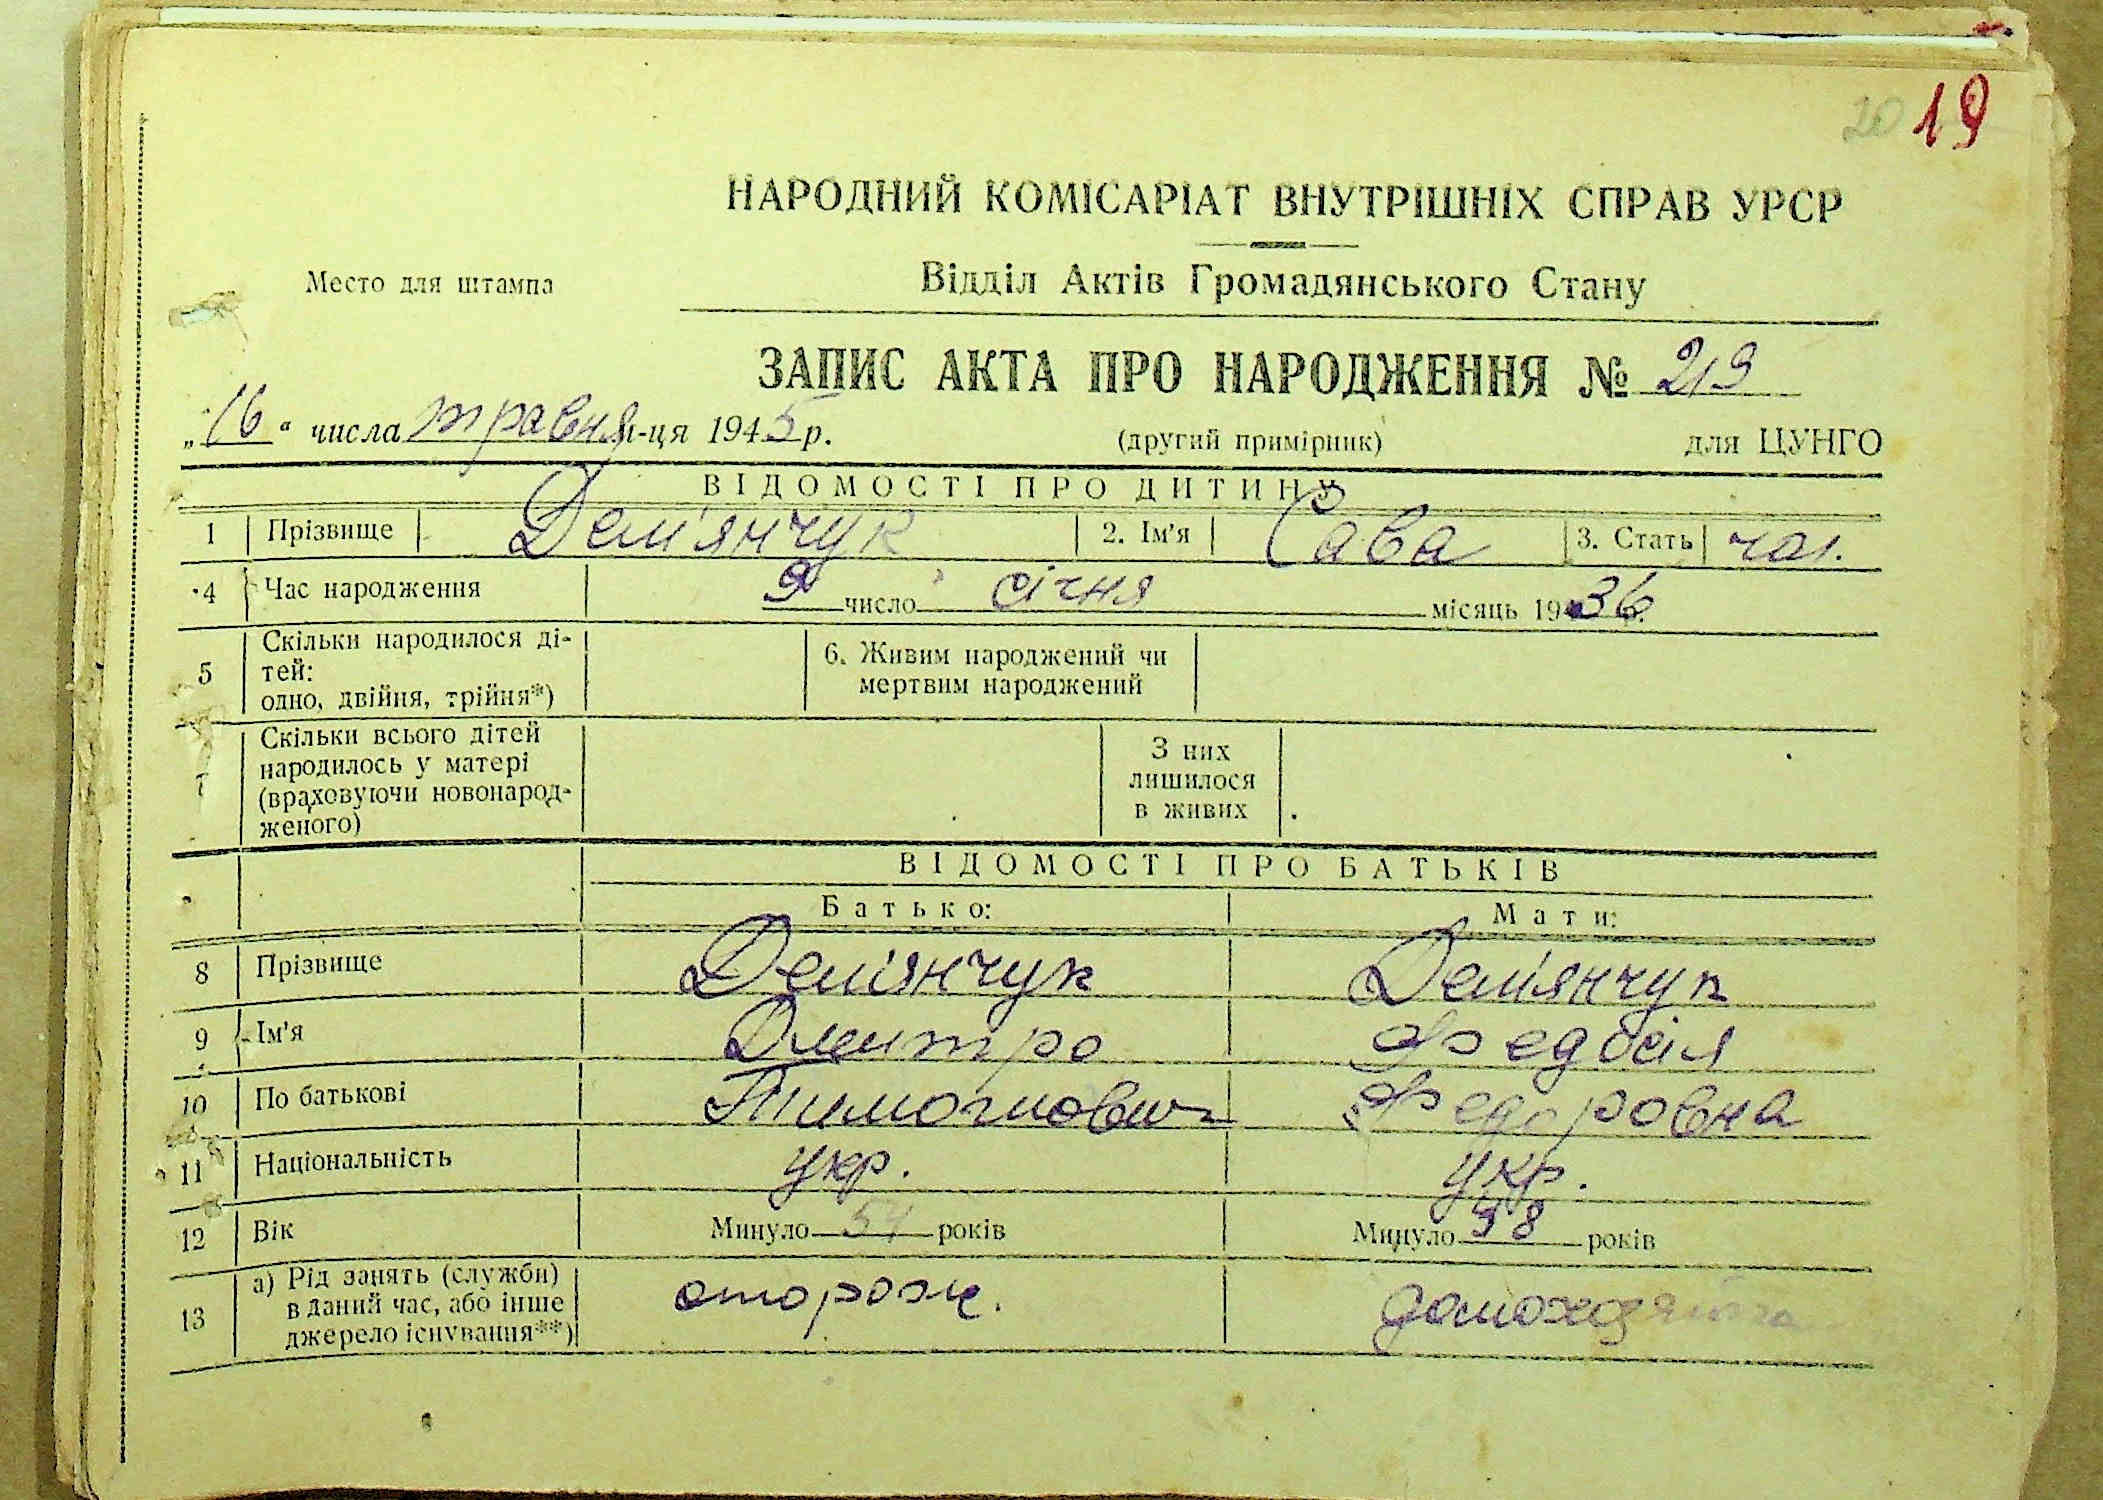 20 19
НАРОДНИЙ КОМІСАРІАТ ВНУТРІШНІХ СПРАВ УРСР
Место для штампа
Відділ Актів Громадянського Стану
ЗАПИС АКТА ПРО НАРОДЖЕННЯ № 219
„16“ числа травня м-ця 1945 р. (другий примірник) для ЦУНГО
ВІДОМОСТІ ПРО ДИТИНУ
1 Прізвище Дем'янчук 2. Ім'я Сава 3. Стать чол.
4 Час народження 9 число січня місяць 1936 р.
5 Скільки народилося ді-
тей:
одно, двійня, трійня*)
6. Живим народжений чи
мертвим народжений
7 Скільки всього дітей
народилось у матері
(враховуючи новонарод-
женого)
З них
лишилося
в живих
ВІДОМОСТІ ПРО БАТЬКІВ
Батько: Мати:
8 Прізвище Дем'янчук Дем'янчук
9 Ім'я Дмитро Федосія
10 По батькові Тимофійович Федоровна
11 Національність укр. укр.
12 Вік Минуло 54 років Минуло років
13 а) Рід занять (служби)
в даний час, або інше
джерело існування**)
сторож. домохозяйка